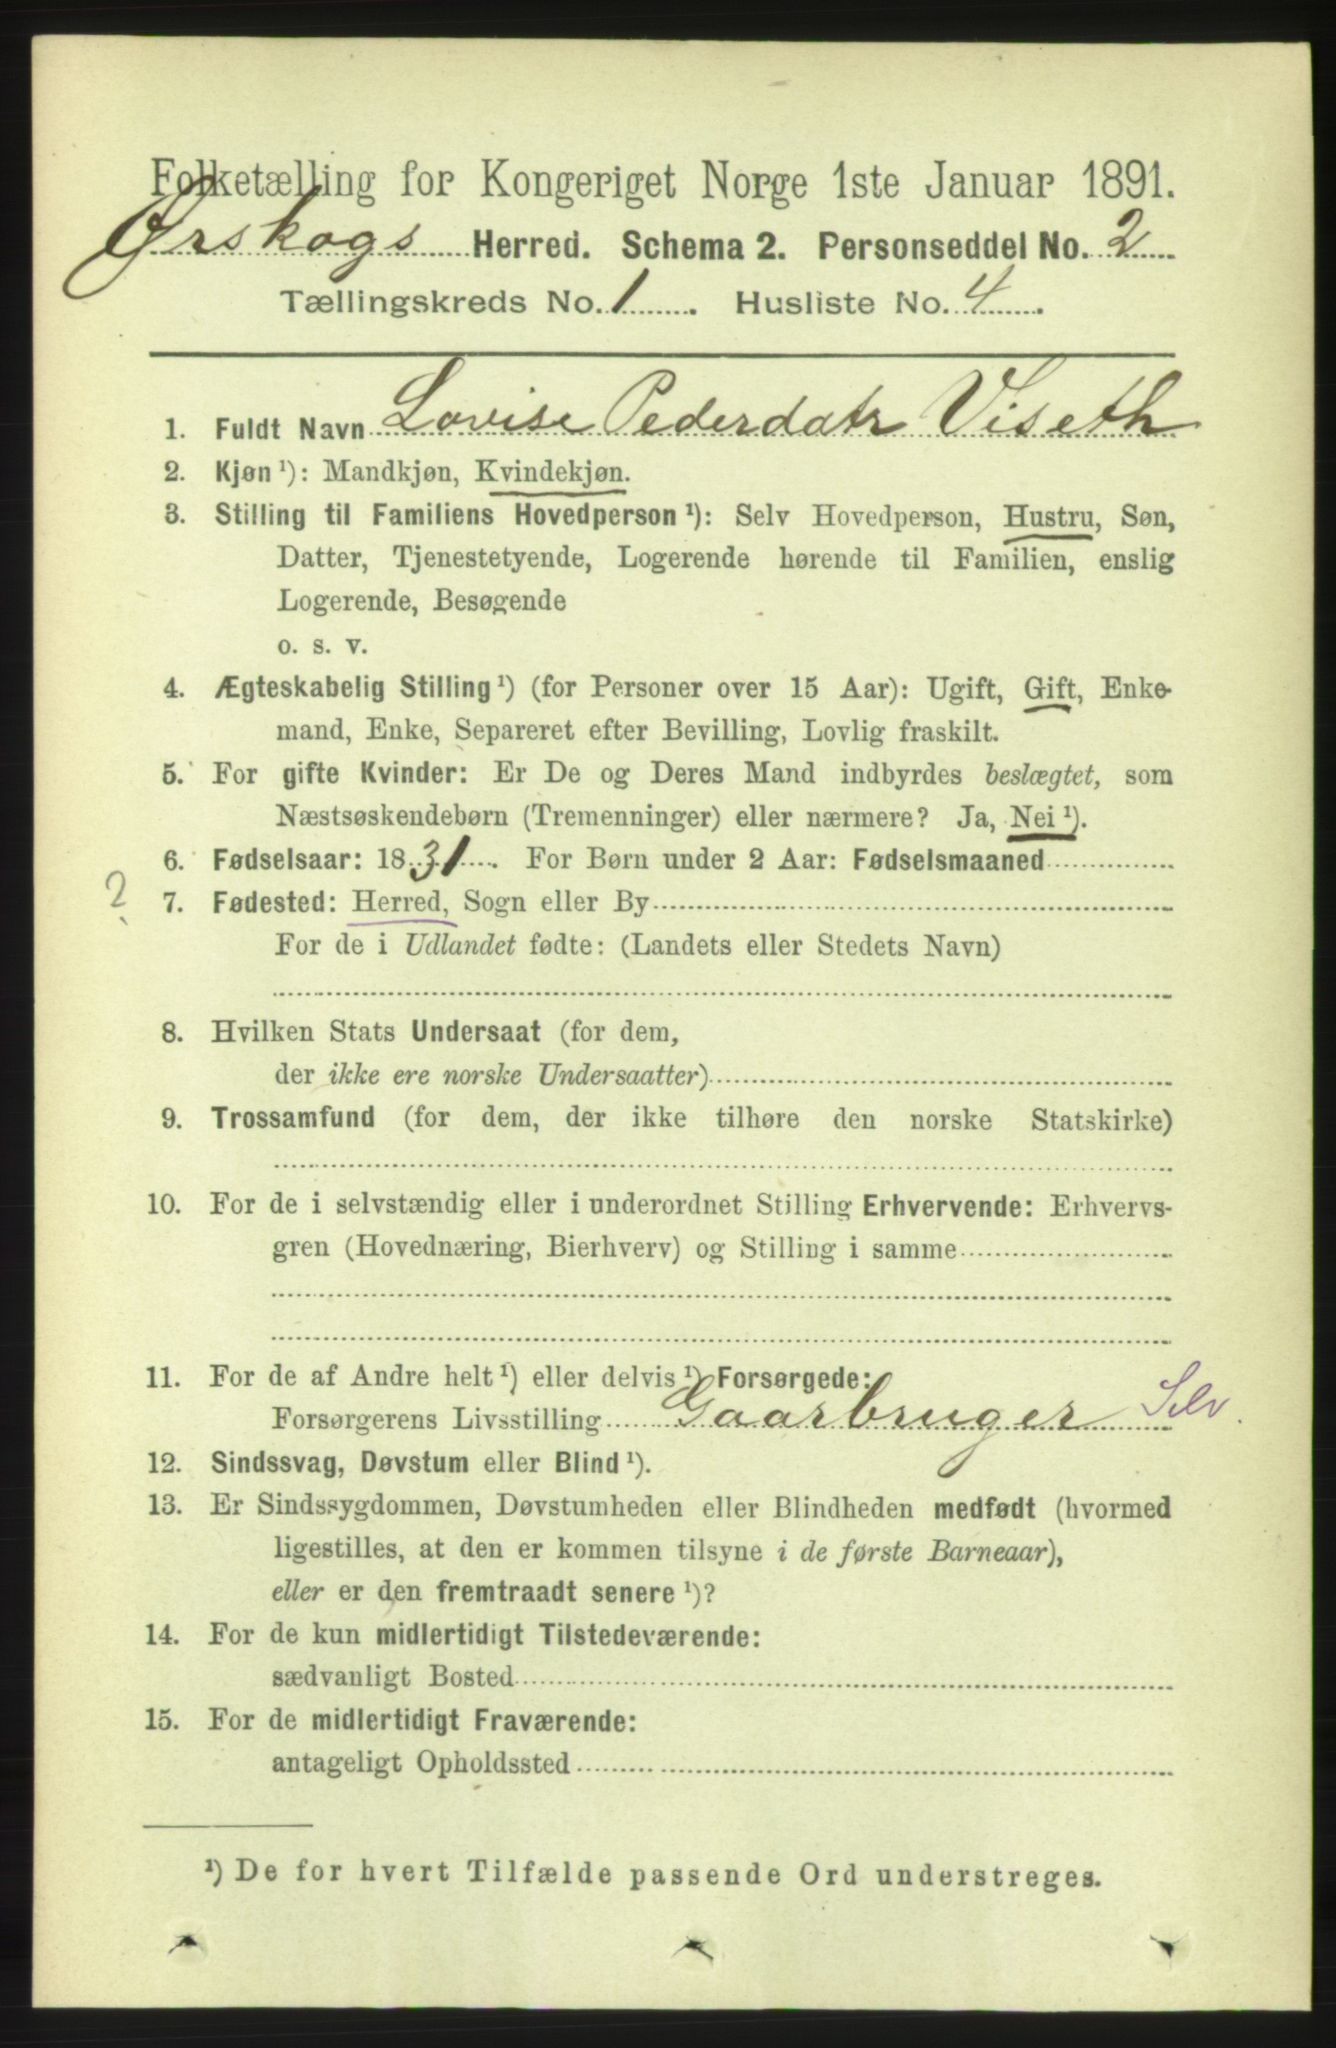 Folketælling for Kongeriget Norge 1ste Januar 1891.
Ørskogs Herred. Schema 2. Personseddel No. 2
Tællingskreds No. 1. Husliste No. 4.
1. Fuldt Navn Lovise Pederdatr Viseth
2. Kjøn ¹): Mandkjøn, Kvindekjøn.
3. Stilling til Familiens Hovedperson ¹): Selv Hovedperson, Hustru, Søn,
Datter, Tjenestetyende, Logerende hørende til Familien, enslig
Logerende, Besøgende
o. s. v.
4. Ægteskabelig Stilling ¹) (for Personer over 15 Aar): Ugift, Gift, Enke-
mand, Enke, Separeret efter Bevilling, Lovlig fraskilt.
5. For gifte Kvinder: Er De og Deres Mand indbyrdes beslægtet, som
Næstsøskendebørn (Tremenninger) eller nærmere? Ja, Nei ¹).
6. Fødselsaar: 1831. For Børn under 2 Aar: Fødselsmaaned
? 7. Fødested: Herred, Sogn eller By
For de i Udlandet fødte: (Landets eller Stedets Navn)
8. Hvilken Stats Undersaat (for dem,
der ikke ere norske Undersaatter)
9. Trossamfund (for dem, der ikke tilhøre den norske Statskirke)
10. For de i selvstændig eller i underordnet Stilling Erhvervende: Erhvervs-
gren (Hovednæring, Bierhverv) og Stilling i samme
11. For de af Andre helt ¹) eller delvis ¹) Forsørgede:
Forsørgerens Livsstilling Gaarbruger Selv.
12. Sindssvag, Døvstum eller Blind ¹).
13. Er Sindssygdommen, Døvstumheden eller Blindheden medfødt (hvormed
ligestilles, at den er kommen tilsyne i de første Barneaar),
eller er den fremtraadt senere ¹)?
14. For de kun midlertidigt Tilstedeværende:
sædvanligt Bosted
15. For de midlertidigt Fraværende:
antageligt Opholdssted
¹) De for hvert Tilfælde passende Ord understreges.